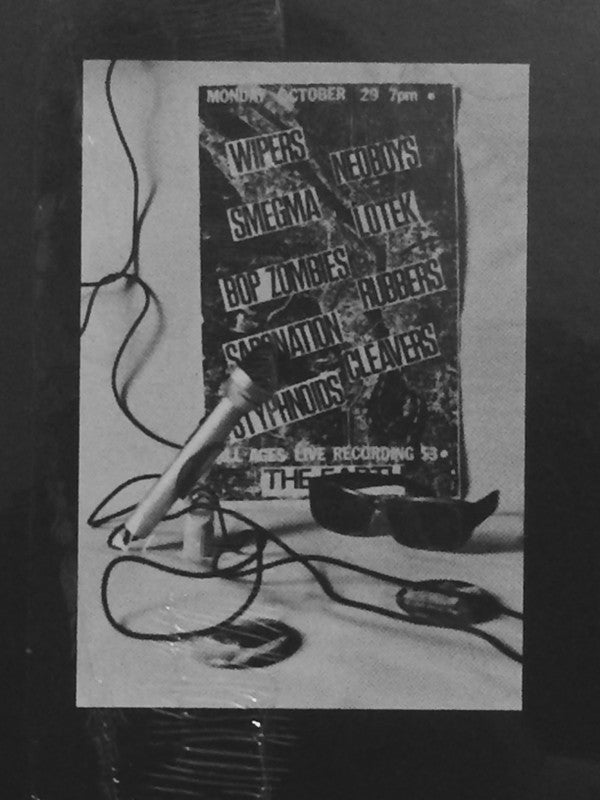 MONDAY OCTOBER 29 7pm •
WIPERS NEOBOYS
SMEGMA LOTEK
BOP ZOMBIES RUBBERS
SADONATION CLEAVERS
STYPHNOIDS
ALL AGES LIVE RECORDING $3•
THE EARTH